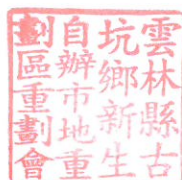 雲林縣古
坑鄉新生
自辦市地重
劃區重劃會